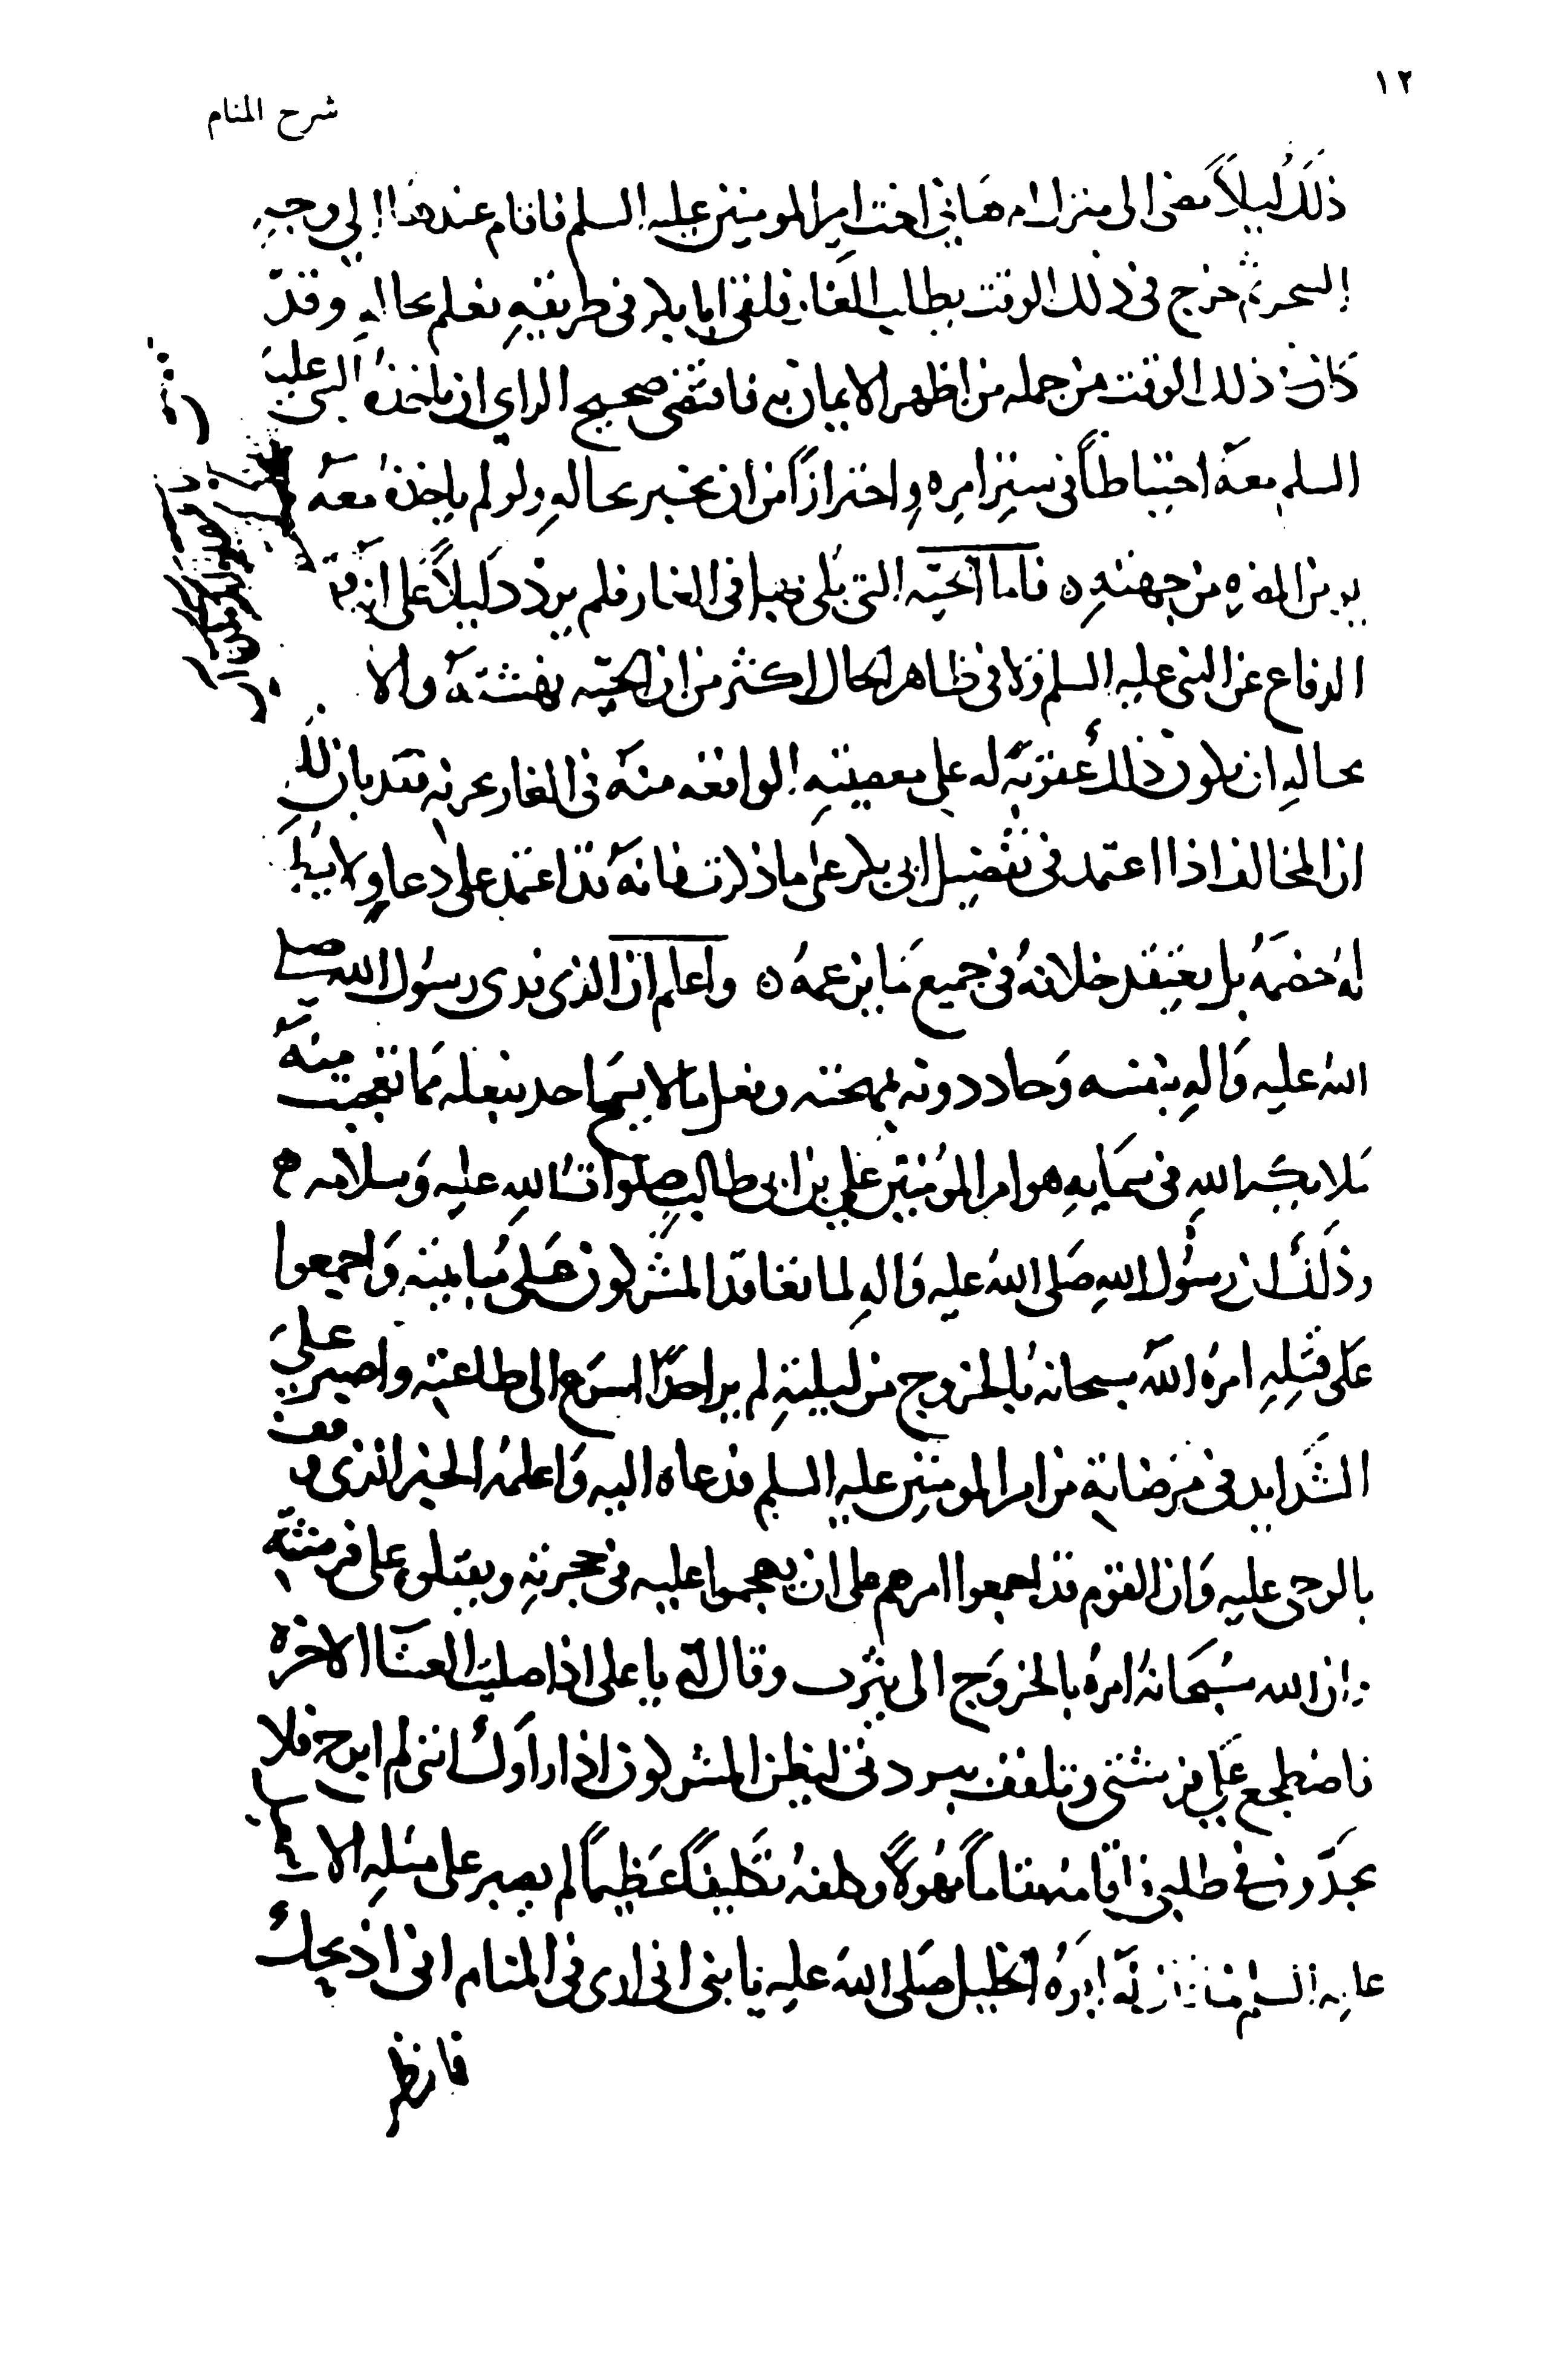 ١٢
شرح المنام
ذلك ليلاً مضى الى منزل ام هاني اخت امير المومنين عليه السلم فاقام عندها الى وجه
السحرة ثم خرج في ذلك الوقت يطلب الغار فلقى ابا بكر في طريقه فعلم بحاله وقد
كان في ذلك الوقت من جمله من اظهر الايمان به فاقتضى صحيح الراي ان ياخذه النبي عليه
السلم معه احتياطاً في ستر امره واحترازاً من ان يخبر بحاله ولو لم ياخذه معه
من جهته ه فاما الحيّه التي في الغار فلم يرد دليلاً على
الدفاع عن النبي عليه السلم ولا في ظاهر الحال اكثر من ان الحيّه نهشته والا
بحاله ان يكون ذلك عقوبة له على معصيته الواقعه منه في الغار بحزنه فقد بان لك
ان المخالف اذا اعتمد في تفضيل ابي بكر على ما ذكرت فانه قد اعتمد على دعاو لا
له خصمه بل يعتقد خلافه في جميع ما يزعمه ه واعلم ان الذي فدى رسول الله صلى
الله عليه واله بنفسه وجاد دونه بمهجته وفعل ما لا يسمح احد بفعله مما تعجبت منه
ملايكة الله في سمايه هو امير المؤمنين علي بن ابي طالب صلوات الله عليه وسلامه
وذلك ان رسول الله صلى الله عليه واله لما تعاقد المشركون على مباينته واجمعوا
على قتله امره الله سبحانه بالخروج من ليلته لم ير احداً اسرع الى طاعته واصبر على
الشدايد في مرضاته من امير المومنين عليه السلم فدعاه اليه واعلمه الخبر الذي
بالوحي عليه وان القوم قد اجمعوا امرهم على ان يهجموا عليه في حجرته ويقتلوه على فرشته
وان الله سبحانه امره بالخروج الى يثرب وقال له يا علي اذا صليت العشا الاخرة
فاضطجع على فرشتي وتلفف ببردتي ليظن المشركون اذا راوك انني لم ابرح فلا
يجدّون في طلبي فاقامه مقاماً مهولاً وكلفه تكليفاً عظيماً لم يصبر على مثله الا
عليه السلم ابوه الخليل صلى الله عليه يا بني اني ارى في المنام اني اذبحك
فانظر